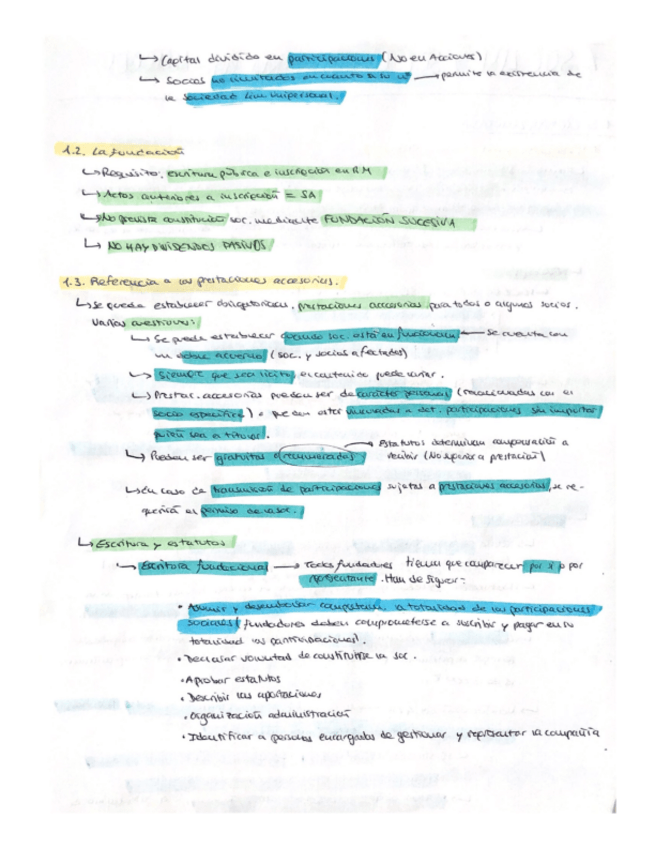 ↳ Capital dividido en participaciones (No en Acciones)
↳ Socios no limitados en cuanto a su nº → permite la existencia de
la sociedad lim. unipersonal.
1.2. La fundación
↳ Requisito: escritura pública e inscripción en RM
↳ Actos anteriores a inscripción = SA
↳ No permite constitución soc. mediante FUNDACIÓN SUCESIVA
↳ NO HAY DIVIDENDOS PASIVOS
1.3. Referencia a las prestaciones accesorias.
↳ Se puede establecer obligatorias, prestaciones accesorias para todos o algunos socios.
Varias cuestiones:
↳ Se puede establecer cuando soc. está en funcionam. ← se cuenta con
un doble acuerdo (soc. y socios afectados)
↳ Siempre que sea lícito, el contenido puede variar.
↳ Prestac. accesorias pueden ser de carácter personal (relacionadas con un
socio específico) o pueden estar vinculadas a det. participaciones sin importar
quién sea el titular.
↳ Pueden ser gratuitas o remuneradas → Estatutos determinan compensación a
recibir (No superior a prestación)
↳ En caso de transmisión de participaciones sujetas a prestaciones accesorias, se re-
querirá el permiso de la soc.
↳ Escritura y estatutos
↳ Escritura fundacional → Todos fundadores tienen que comparecer por sí o por
representante. Han de figurar:
• Asumir y desembolsar la totalidad de las participaciones
sociales (fundadores deben comprometerse a suscribir y pagar en su
totalidad las participaciones).
• Declarar voluntad de constituir la soc.
• Aprobar estatutos
• Describir las aportaciones
• Organización administración
• Identificar a personas encargadas de gestionar y representar la compañía